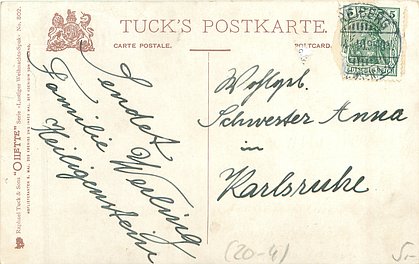 TUCK'S POSTKARTE.
CARTE POSTALE.
POSTCARD.
Raphael Tuck & Sons "OILETTE" Serie „Lustiger Weihnachts-Spuk“ No. 802.
sendet
Familie Werling
Heiligenstein
Wohlgb.
Schwester Anna
in
Karlsruhe
(20-4)
5.-